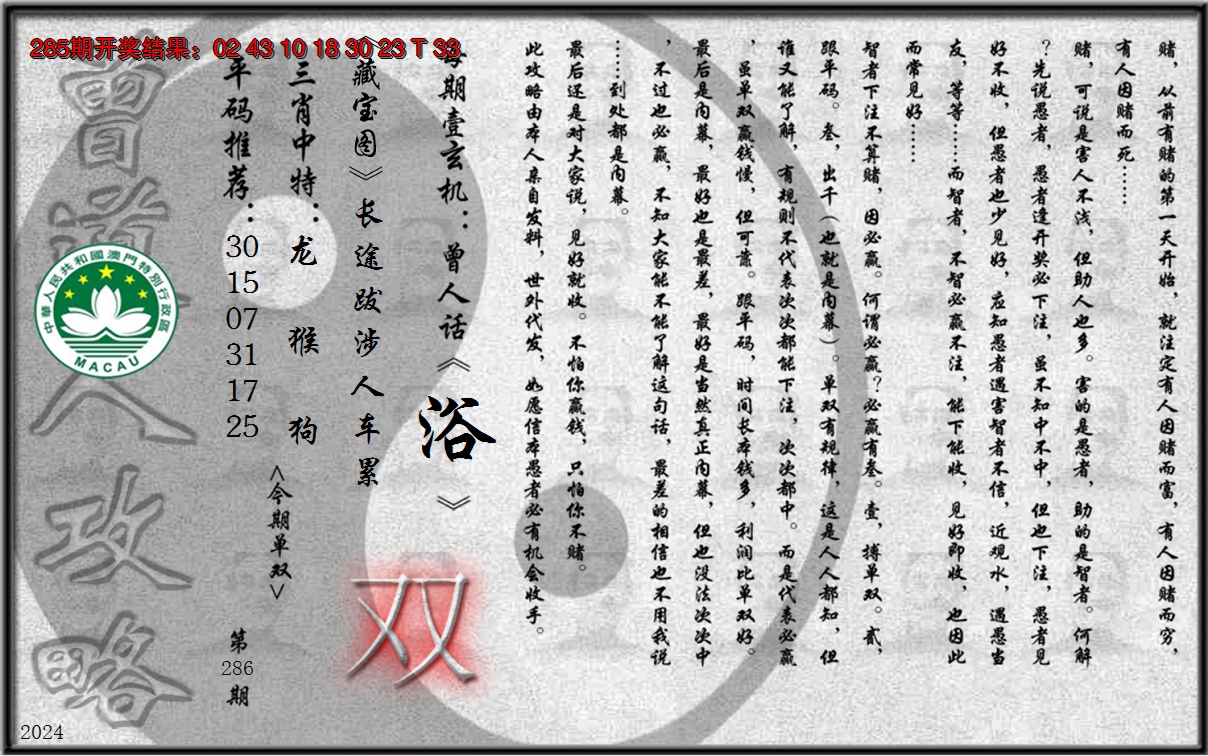 285期开奖结果：02 43 10 18 30 23 T 33
赌，从前有赌的第一天开始，就注定有人因赌而富，有人因赌而穷，
有人因赌而死……
赌，可说是害人不浅，但助人也多。害的是愚者，助的是智者。何解
？先说愚者，愚者逢开奖必下注，虽不知中不中，但也下注，愚者见
好不收，但愚者也少见好，应知愚者遇害智者不信，近观水，遇愚当
友，等等……而智者，不智必赢不注，能下能收，见好即收，也因此
而常见好……
智者下注不算赌，因必赢。何谓必赢？必赢有叁。壹，搏单双。贰，
跟平码。叁，出千（也就是内幕）。单双有规律，这是人人都知，但
谁又能了解，有规则不代表次次都能下注，次次都中。而是代表必赢
，虽单双赢钱慢，但可靠。跟平码，时间长本钱多，利润比单双好。
最后是内幕，最好也是最差，最好是当然真正内幕，但也没法次次中
，不过也必赢，不知大家能不能了解这句话，最差的相信也不用我说
……到处都是内幕。
最后还是对大家说，见好就收。不怕你赢钱，只怕你不赌。
此攻略由本人亲自发料，世外代发，如愿信本愚者必有机会收手。
每期壹玄机：曾人话《浴》
《藏宝图》长途跋涉人车累
三肖中特：龙 猴 狗
<今期单双>
双
平码推荐：30 15 07 31 17 25
第286期
曾道人攻略
中華人民共和國澳門特別行政區
MACAU
2024